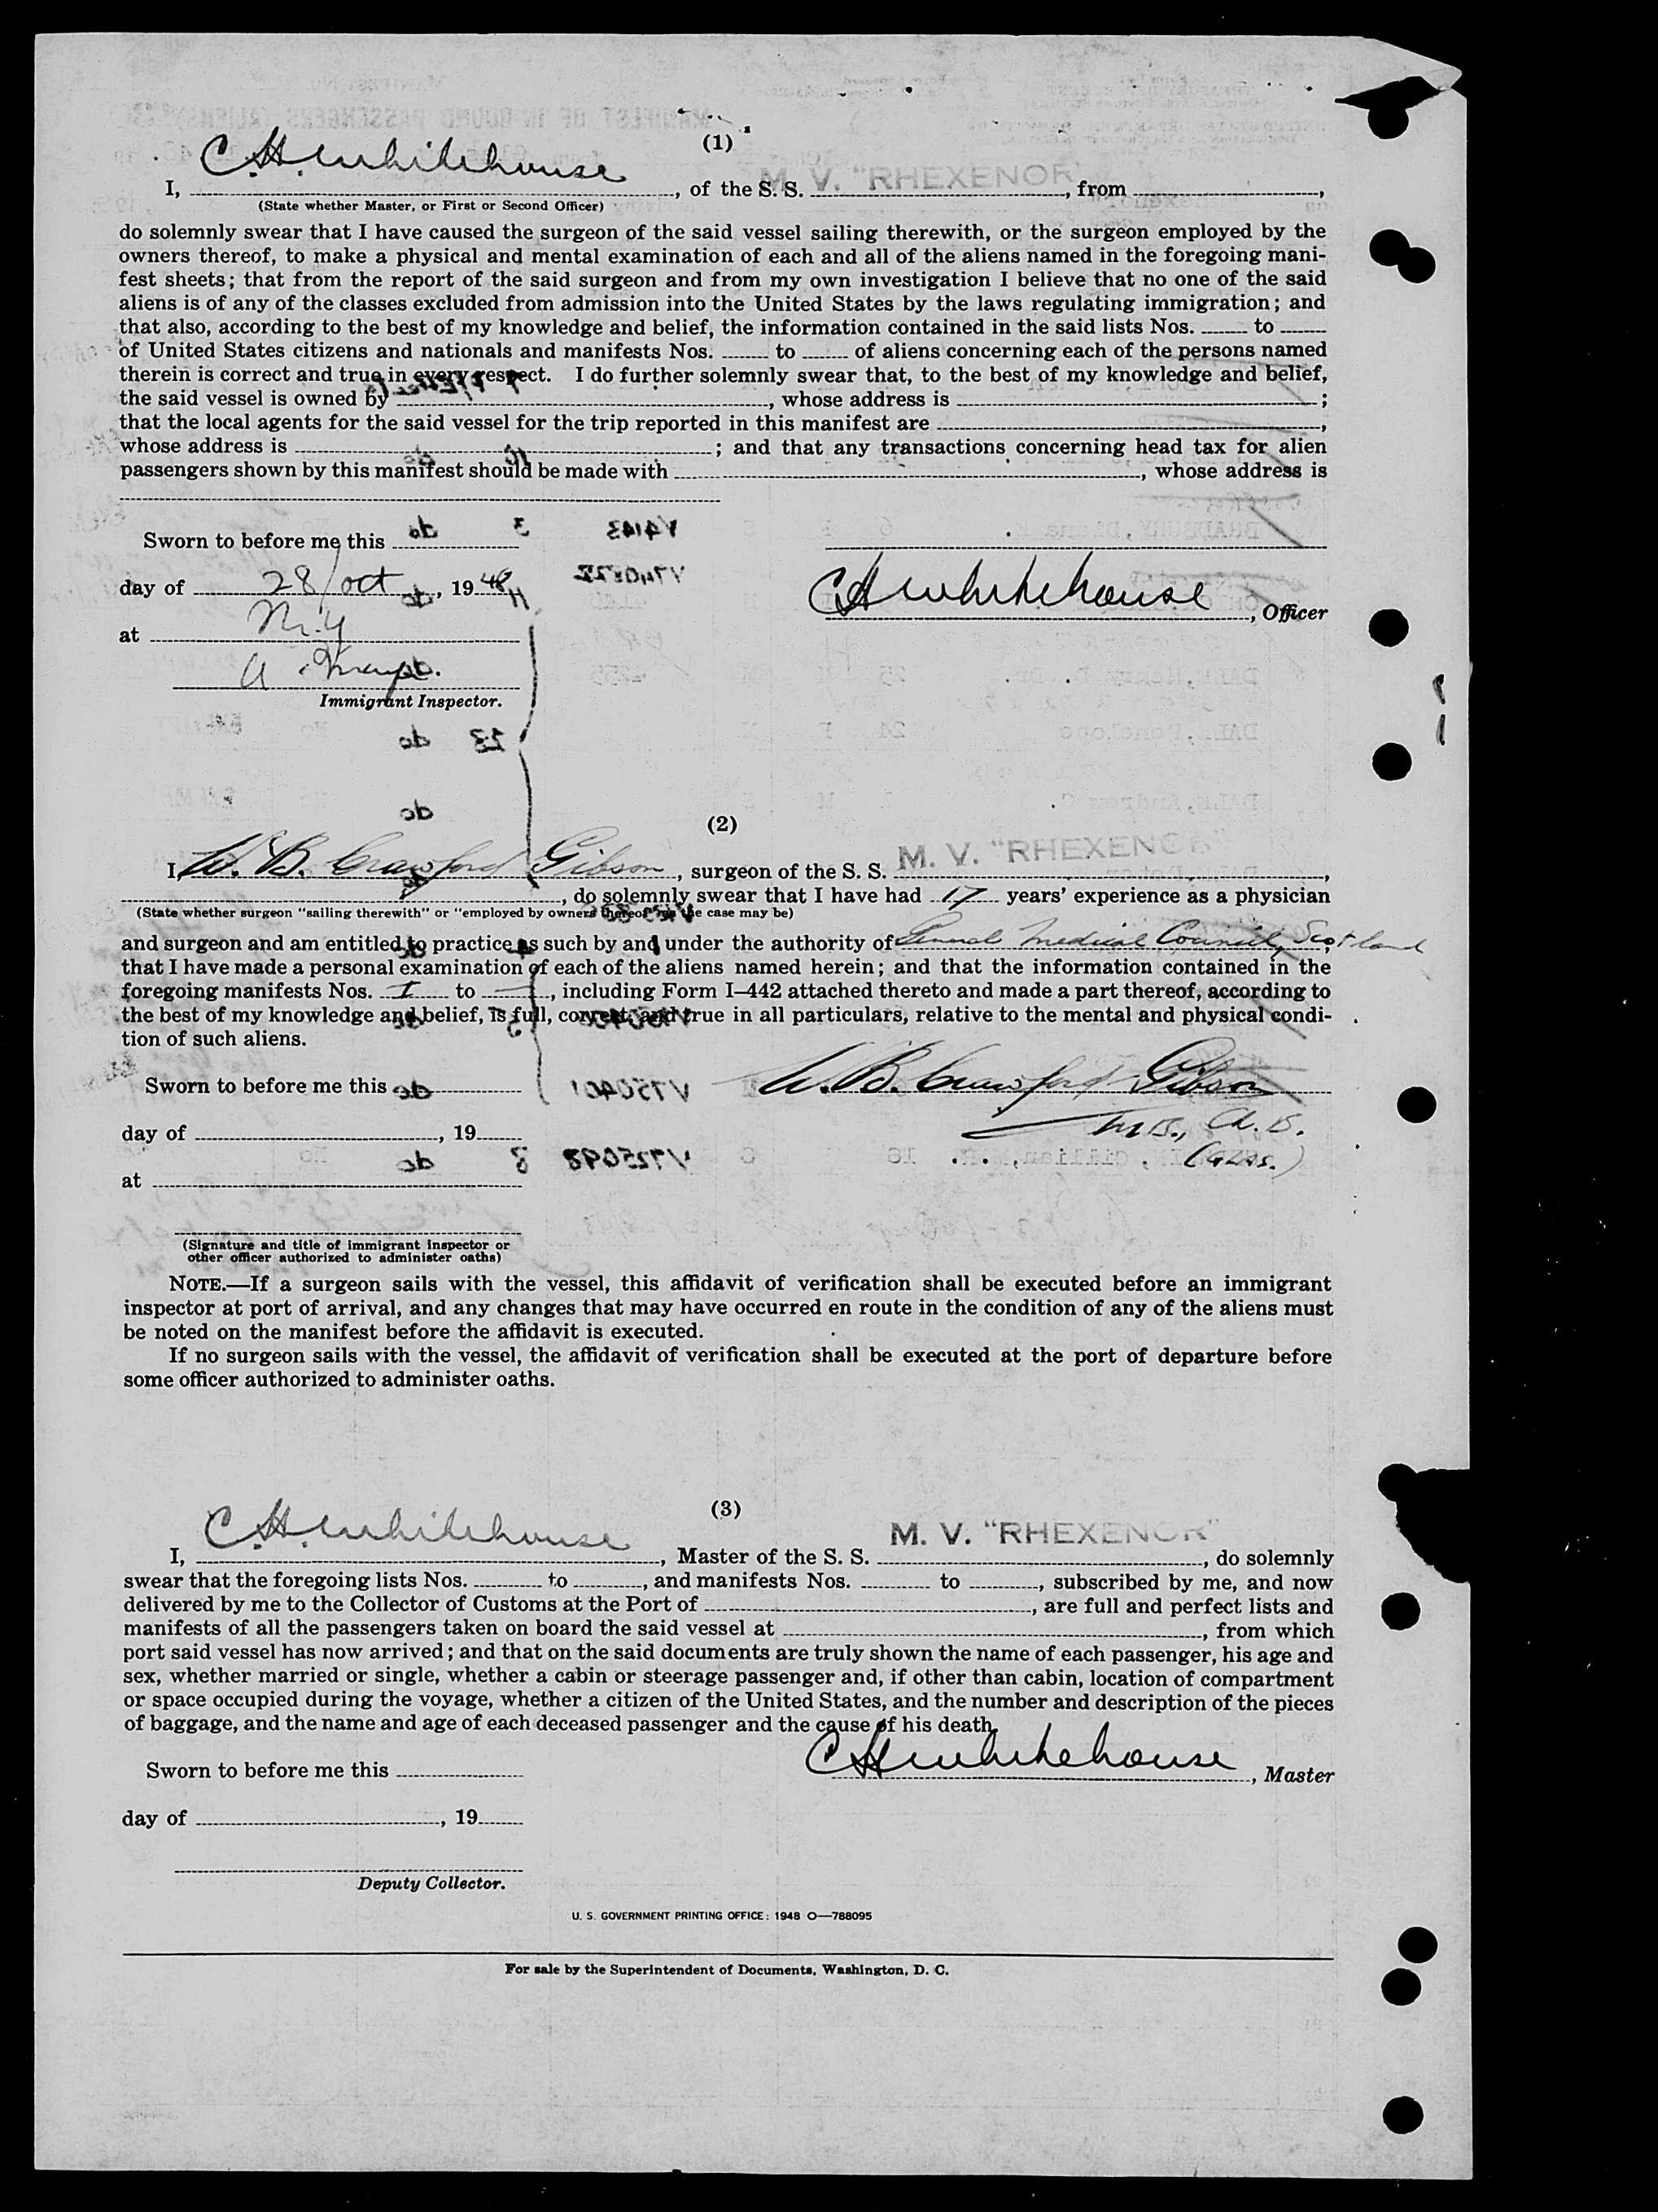 (1)
I, C. H. Whitehouse, of the S. S. M. V. "RHEXENOR", from ,
(State whether Master, or First or Second Officer)
do solemnly swear that I have caused the surgeon of the said vessel sailing therewith, or the surgeon employed by the
owners thereof, to make a physical and mental examination of each and all of the aliens named in the foregoing mani-
fest sheets; that from the report of the said surgeon and from my own investigation I believe that no one of the said
aliens is of any of the classes excluded from admission into the United States by the laws regulating immigration; and
that also, according to the best of my knowledge and belief, the information contained in the said lists Nos. to
of United States citizens and nationals and manifests Nos. to of aliens concerning each of the persons named
therein is correct and true in every respect. I do further solemnly swear that, to the best of my knowledge and belief,
the said vessel is owned by , whose address is ;
that the local agents for the said vessel for the trip reported in this manifest are ,
whose address is ; and that any transactions concerning head tax for alien
passengers shown by this manifest should be made with , whose address is
Sworn to before me this
day of 28/oct, 1948
CH Whitehouse, Officer
at N.Y
Immigrant Inspector.
(2)
I, W. B. Crawford Gibson, surgeon of the S. S. M. V. "RHEXENOR",
, do solemnly swear that I have had 17 years' experience as a physician
(State whether surgeon "sailing therewith" or "employed by owners thereof" as the case may be)
and surgeon and am entitled to practice as such by and under the authority of General Medical Council, Scotland
that I have made a personal examination of each of the aliens named herein; and that the information contained in the
foregoing manifests Nos. I to —, including Form I-442 attached thereto and made a part thereof, according to
the best of my knowledge and belief, is full, correct, and true in all particulars, relative to the mental and physical condi-
tion of such aliens.
Sworn to before me this
W. B. Crawford Gibson
day of , 19
M.B., Ch.B.
(Glas.)
at
(Signature and title of immigrant inspector or
other officer authorized to administer oaths)
NOTE.—If a surgeon sails with the vessel, this affidavit of verification shall be executed before an immigrant
inspector at port of arrival, and any changes that may have occurred en route in the condition of any of the aliens must
be noted on the manifest before the affidavit is executed.
If no surgeon sails with the vessel, the affidavit of verification shall be executed at the port of departure before
some officer authorized to administer oaths.
(3)
I, C. H. Whitehouse, Master of the S. S. M. V. "RHEXENOR", do solemnly
swear that the foregoing lists Nos. to , and manifests Nos. to , subscribed by me, and now
delivered by me to the Collector of Customs at the Port of , are full and perfect lists and
manifests of all the passengers taken on board the said vessel at , from which
port said vessel has now arrived; and that on the said documents are truly shown the name of each passenger, his age and
sex, whether married or single, whether a cabin or steerage passenger and, if other than cabin, location of compartment
or space occupied during the voyage, whether a citizen of the United States, and the number and description of the pieces
of baggage, and the name and age of each deceased passenger and the cause of his death.
CH Whitehouse, Master
Sworn to before me this
day of , 19
Deputy Collector.
U. S. GOVERNMENT PRINTING OFFICE: 1948 O—788095
For sale by the Superintendent of Documents, Washington, D. C.